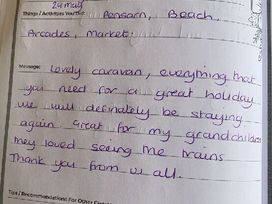 29 May
Things / Activities You Did: Pensarn, Beach,
Arcades, Market.
Message: Lovely caravan, everything that
you need for a great holiday
we will definately be staying
again Great for my grandchildren
they loved seeing the trains
Thank you from us all.
Tips / Recommendations For Other